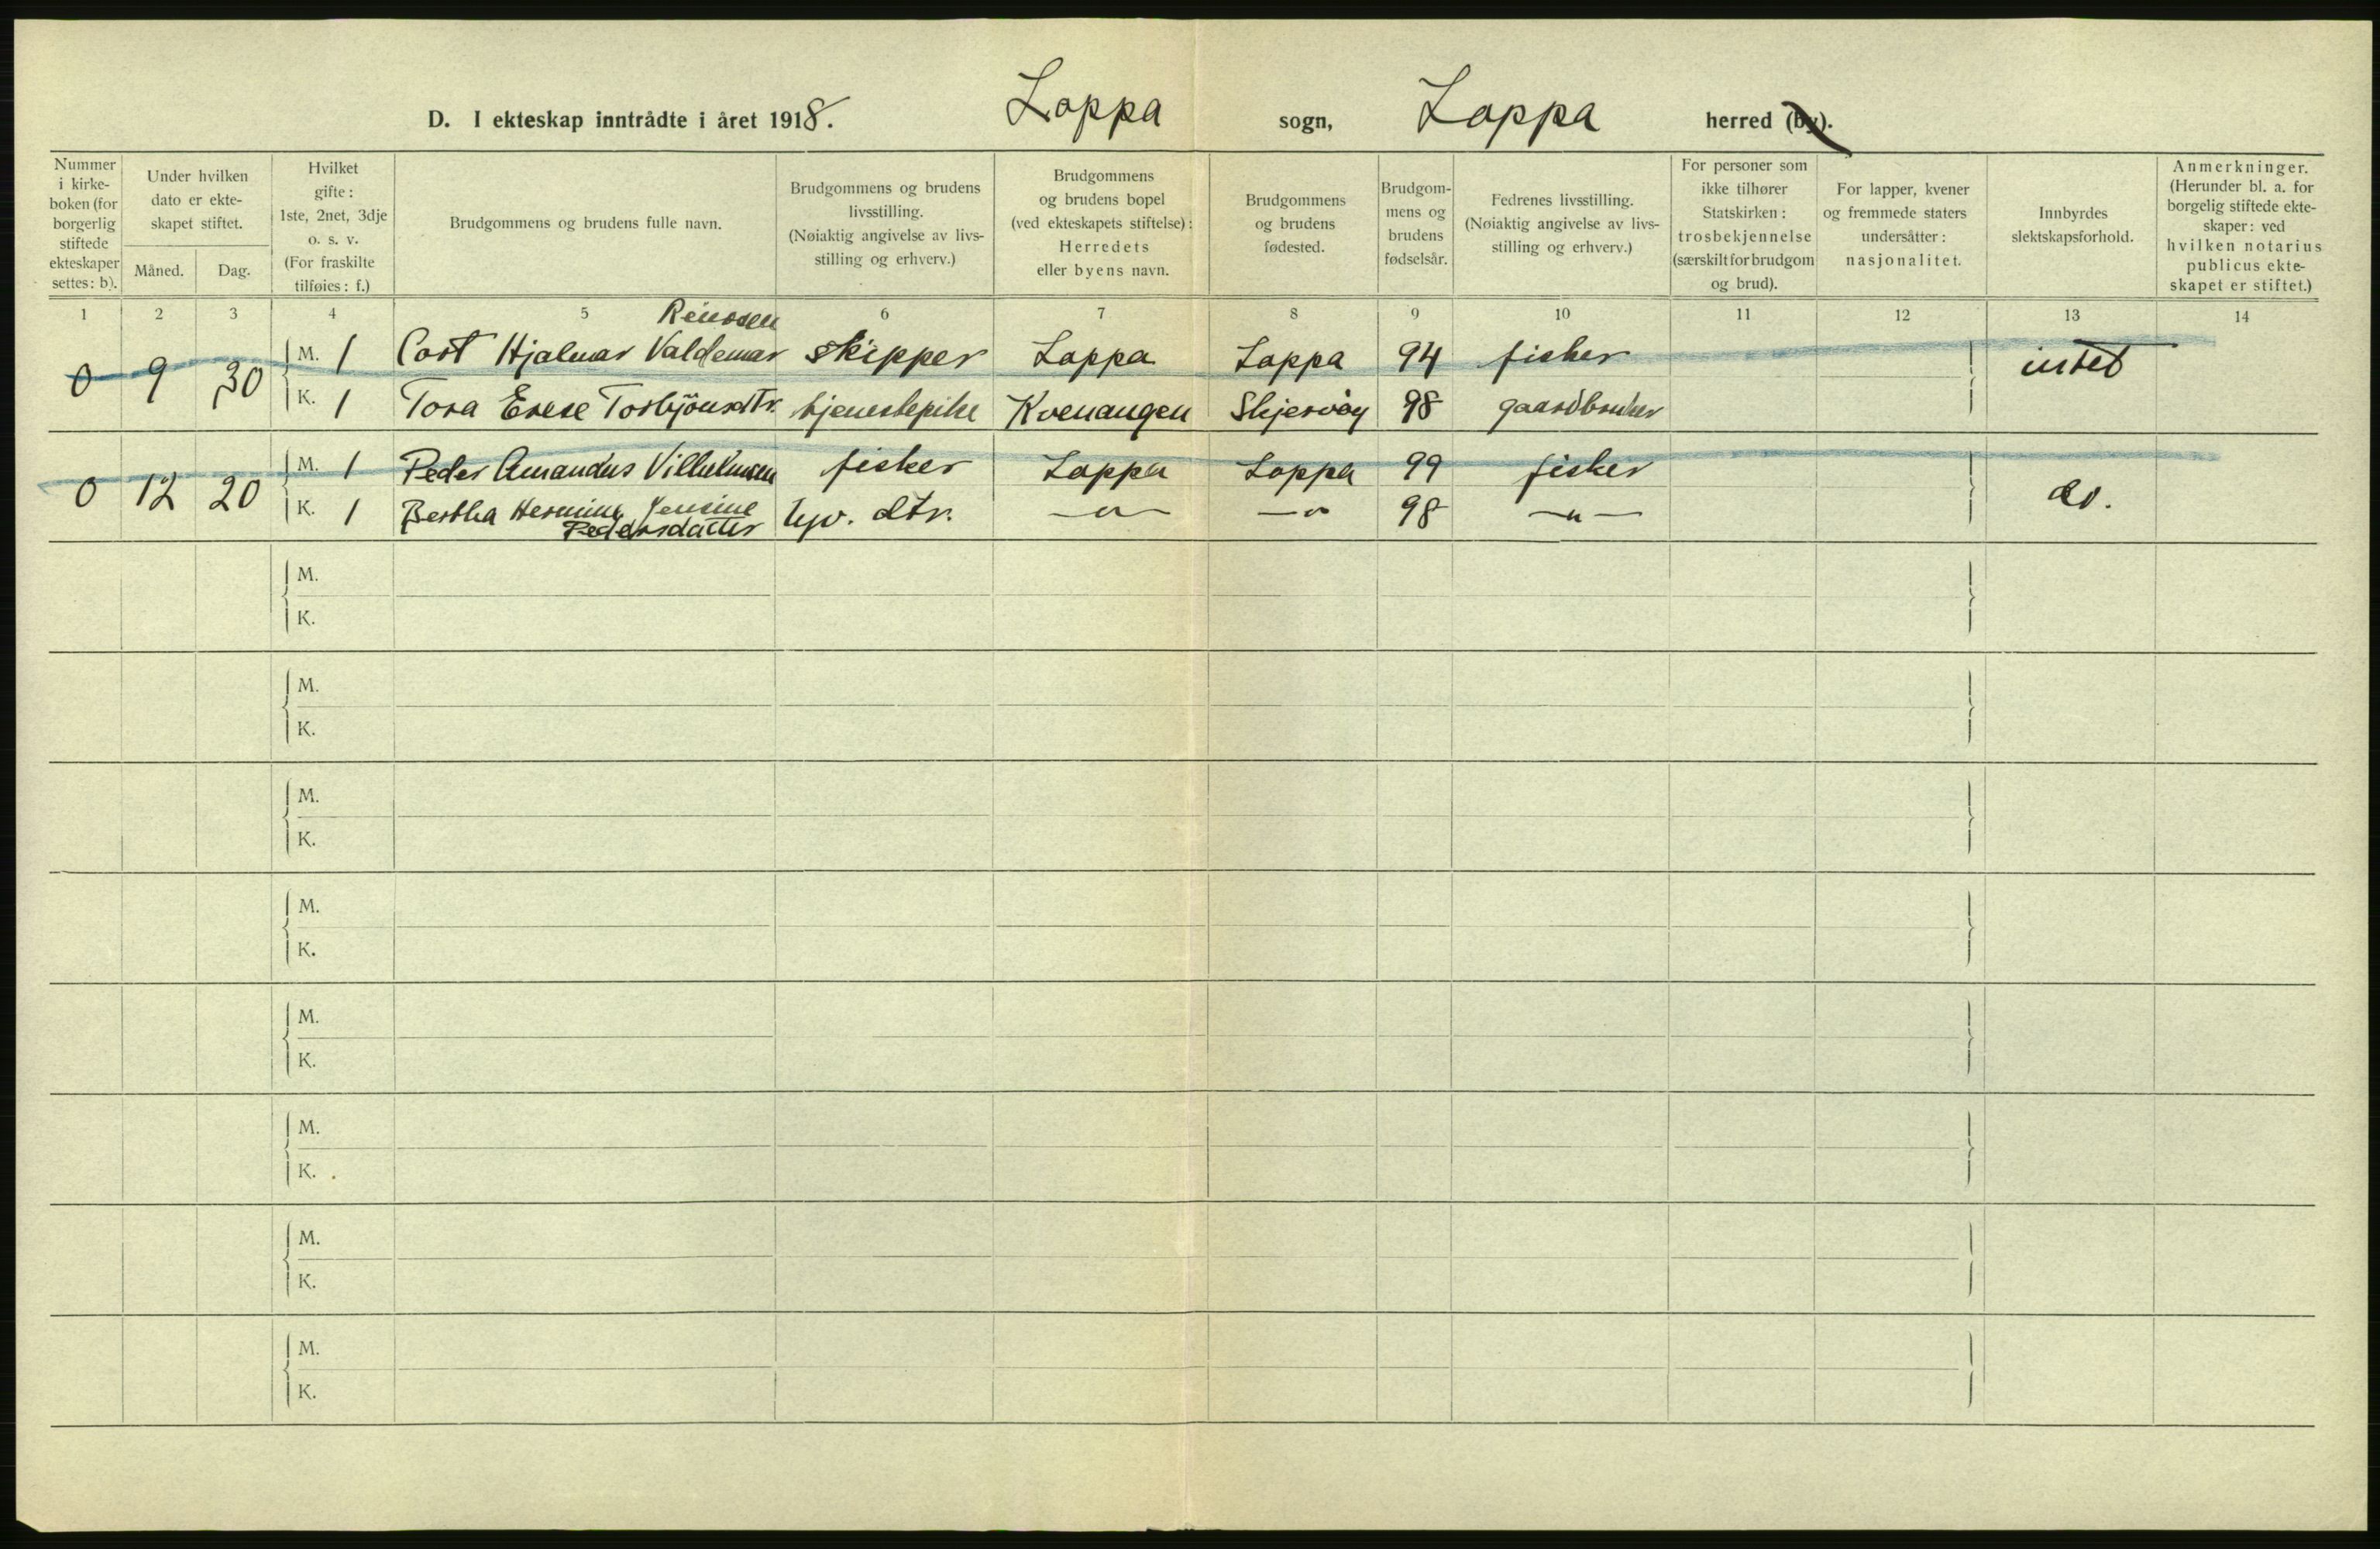 D. I ekteskap inntrådte i året 1918. Loppa sogn, Loppa herred (by).
Nummer i kirke-boken (for borgerlig stiftede ekteskaper settes: b).
Under hvilken dato er ekte-skapet stiftet.
Måned. Dag.
Hvilket gifte: 1ste, 2net, 3dje o. s. v. (For fraskilte tilføies: f.)
Brudgommens og brudens fulle navn.
Brudgommens og brudens livsstilling. (Nøiaktig angivelse av livs-stilling og erhverv.)
Brudgommens og brudens bopel (ved ekteskapets stiftelse): Herredets eller byens navn.
Brudgommens og brudens fødested.
Brudgom-mens og brudens fødselsår.
Fedrenes livsstilling. (Nøiaktig angivelse av livs-stilling og erhverv.)
For personer som ikke tilhører Statskirken: trosbekjennelse (særskilt for brudgom og brud).
For lapper, kvener og fremmede staters undersåtter: nasjonalitet.
Innbyrdes slektskapsforhold.
Anmerkninger. (Herunder bl. a. for borgelig stiftede ekte-skaper: ved hvilken notarius publicus ekte-skapet er stiftet.)
1 2 3 4 5 6 7 8 9 10 11 12 13 14
0 9 30
M. 1 Cort Hjalmar Valdemar skipper Loppa Loppa 94 fisker intet
K. 1 Tora Torbjönsdtr. tjenestepike Kvenangen Skjervöy 98 gaardbruker
0 12 20
M. 1 Peder Amandus Vilhelmsen fisker Loppa Loppa 99 fisker do.
K. 1 Bertha Hermine Jensine Pedersdatter hjv. dtr. —"— —"— 98 —"—
M.
K.
M.
K.
M.
K.
M.
K.
M.
K.
M.
K.
M.
K.
M.
K.